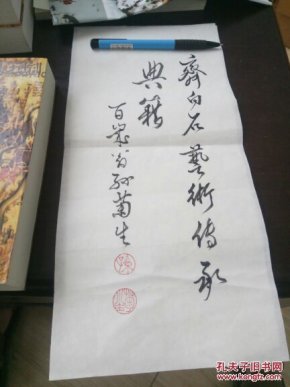 齊白石藝術傳承
典籍
百歲翁孫菊生
孔夫子旧书网
www.kongfz.com